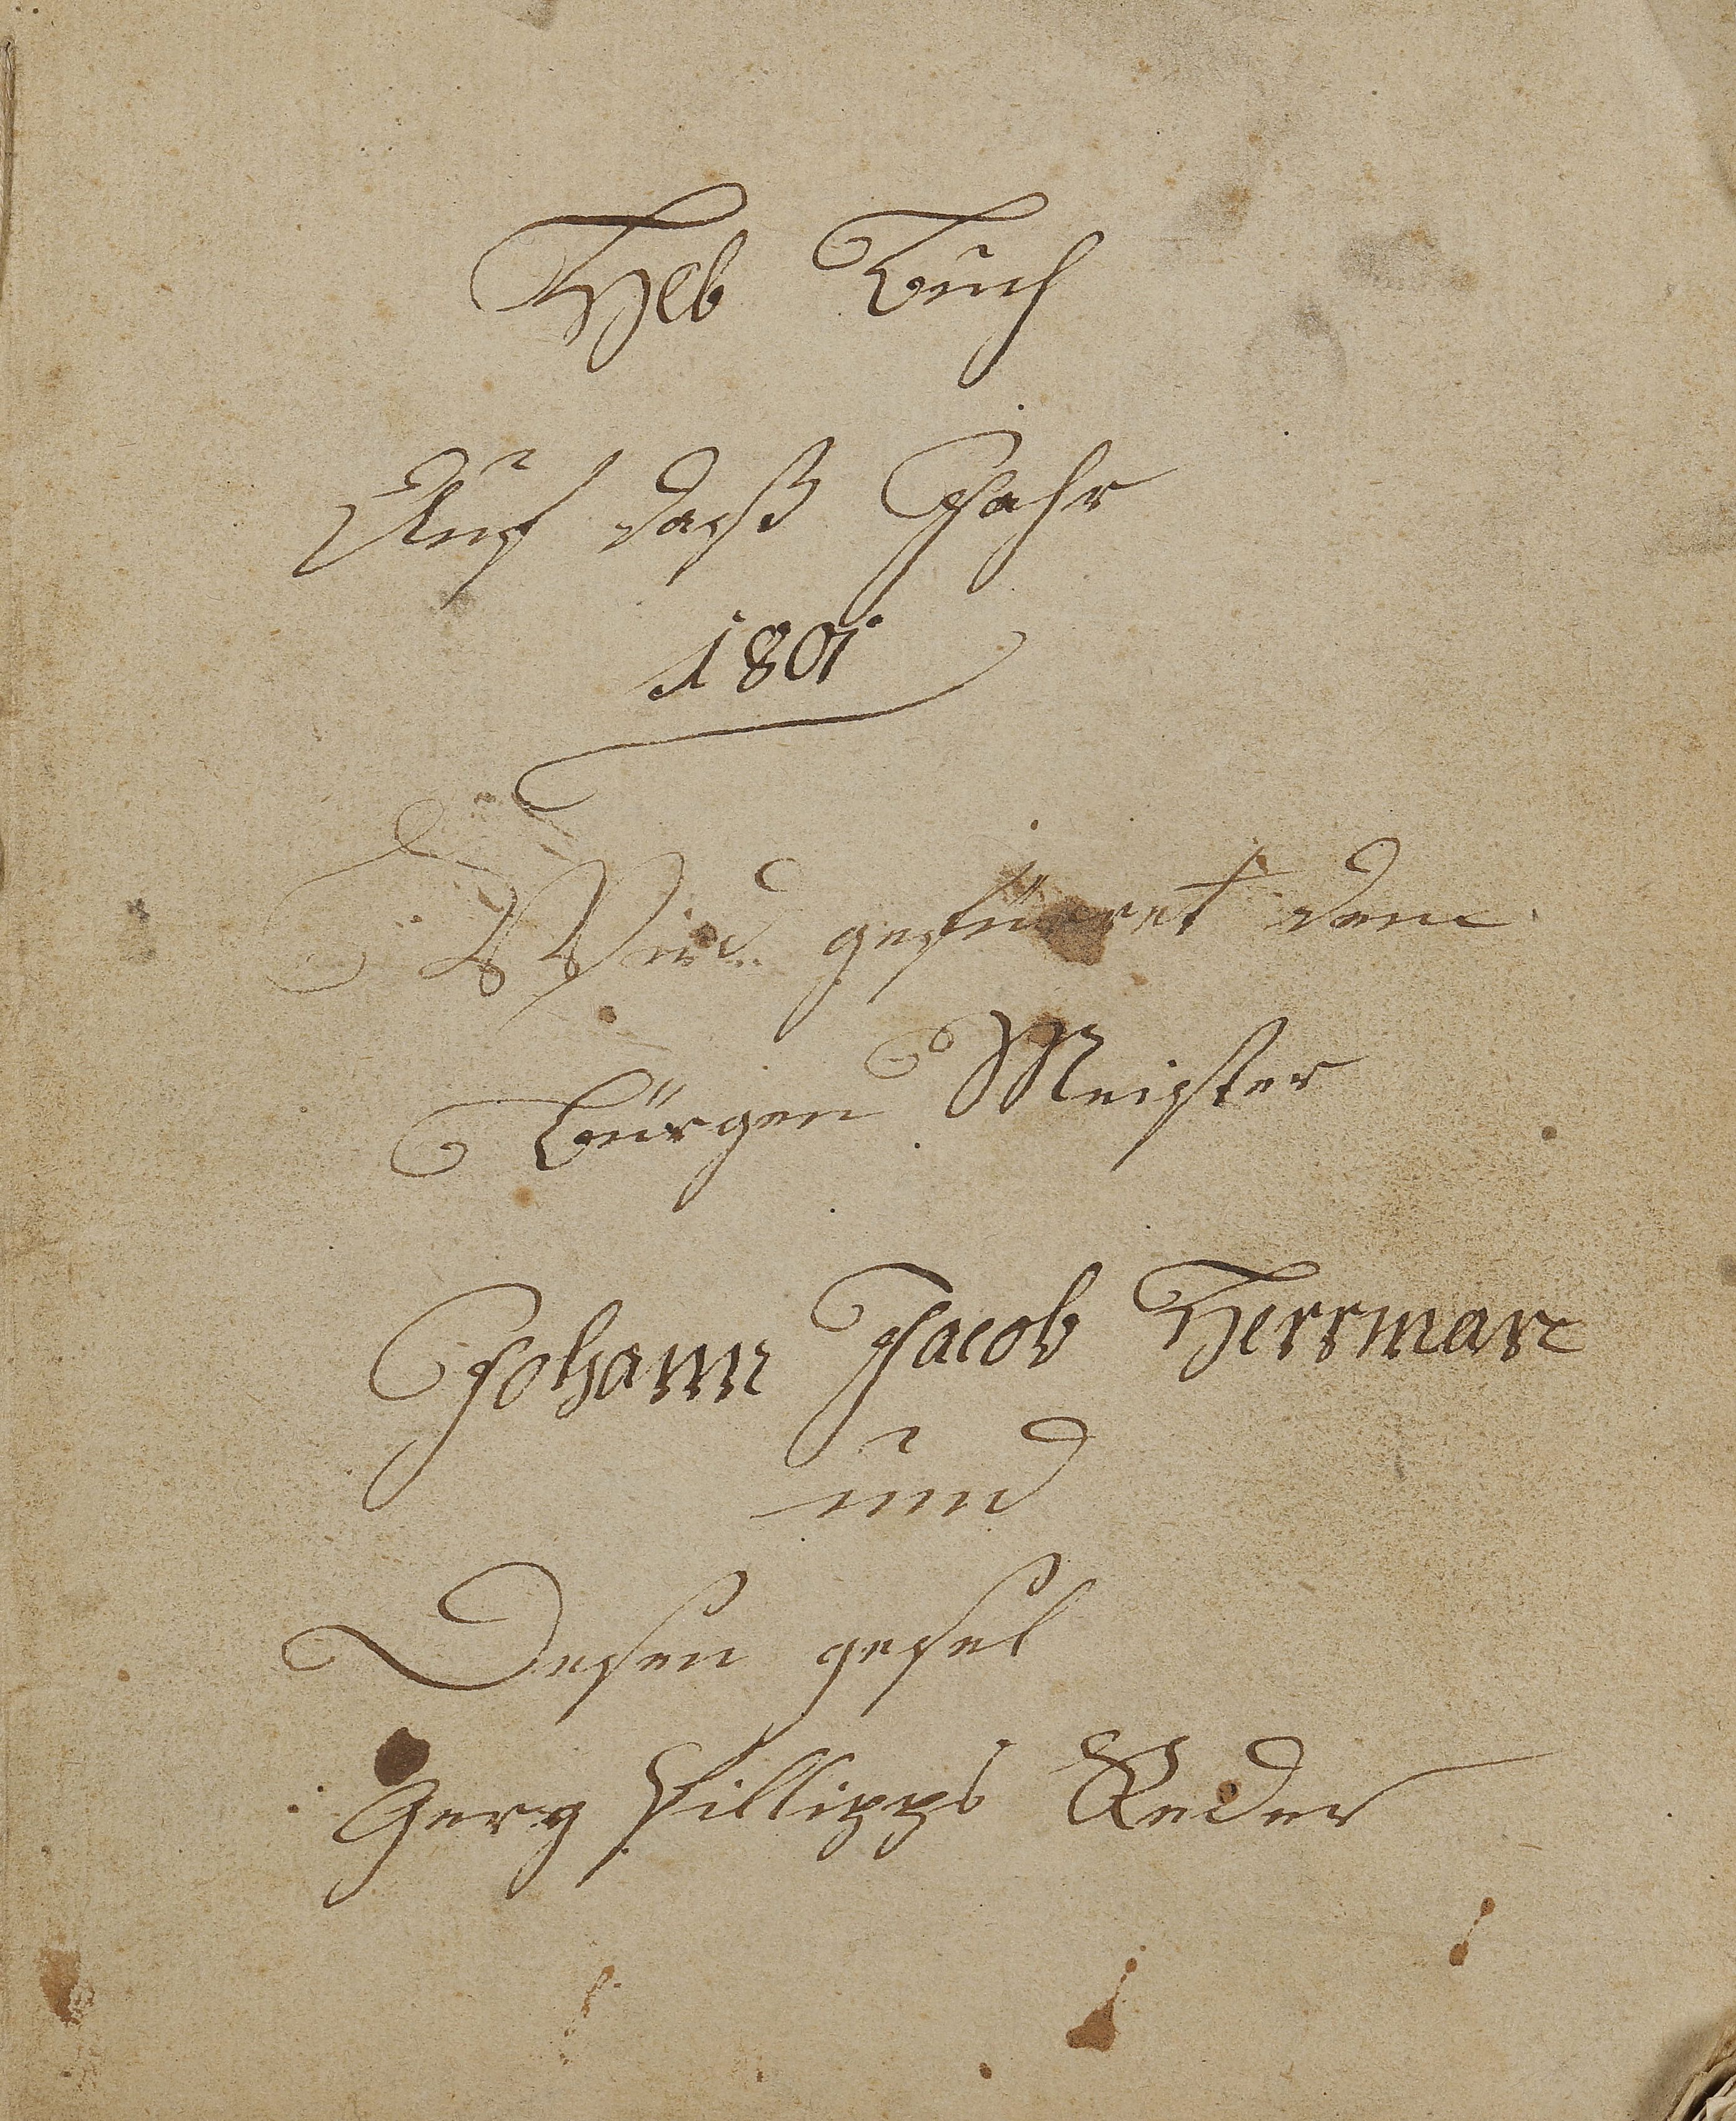 Heb Buch
Auf daß Jahr
1801
Wird gefüret dem
bürgen Meister
Johann Jacob Herrman
und
Desen gesel
Gerg Pillipps Reder